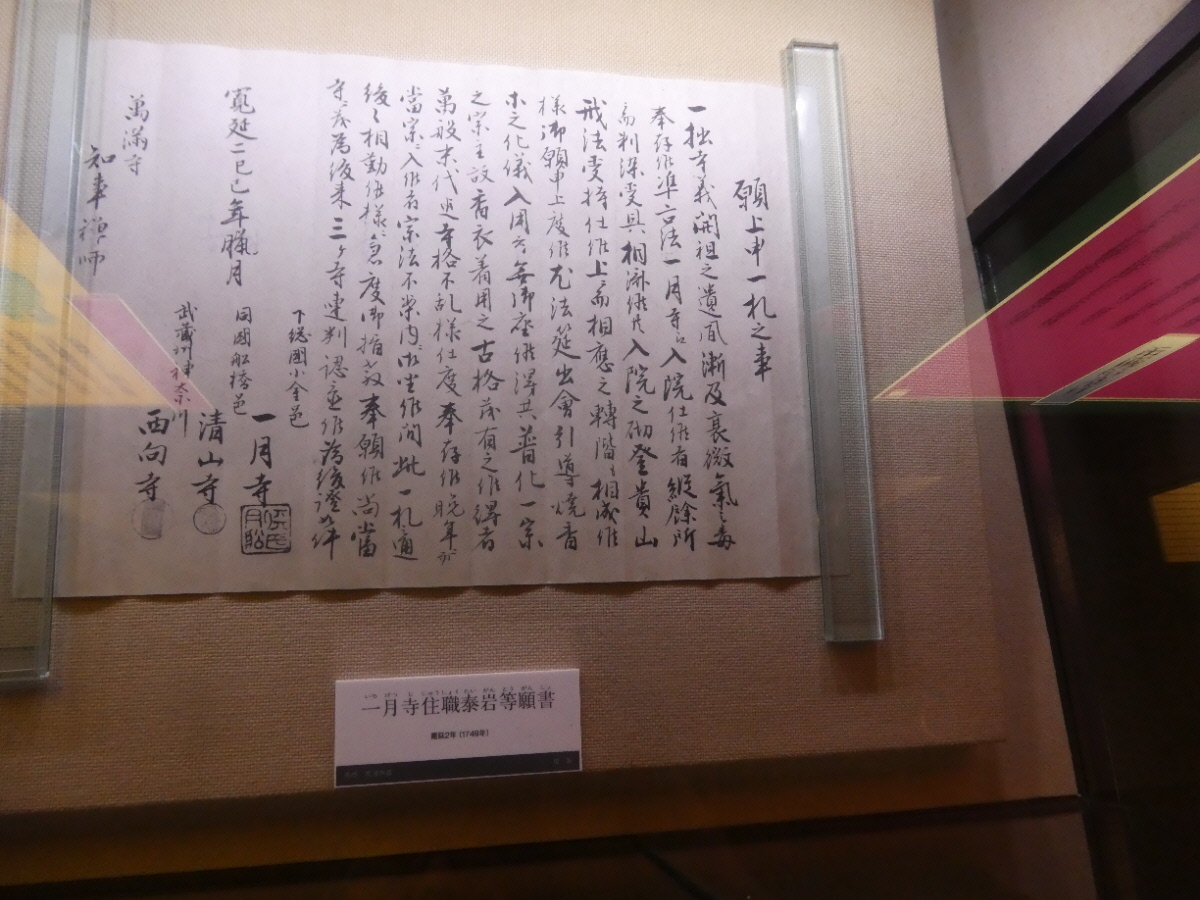 願上申一札之事
一拙寺義開祖之遺風漸及衰微氣毒
奉存候準古法一月寺江入院仕候者縦除所
而判深受具相済候共入院之砌登貴山
戒法受持仕候上而相應之轉階も相成候
様御願申上度候尤法筵出會引導焼香
木之化儀入用者無御座候得共普化一宗
之宗主設香衣着用之古格茂有之候得者
萬般末代迠寺格不乱様仕度奉存候晩年
當宗江入候者宗法不案内御坐候間此一札適
後々相勤候様急度御指教奉願候尚當
寺茂為後来三ヶ寺連判認並候為後證如件
下総國小金邑
一月寺
同國船橋邑
清山寺
武蔵州神奈川
西向寺
寛延二巳巳年臘月
萬満寺
知事禅師
一月寺住職泰岩等願書
いちげつじじゅうしょくたいがんとうがんしょ
寛延2年（1749年）